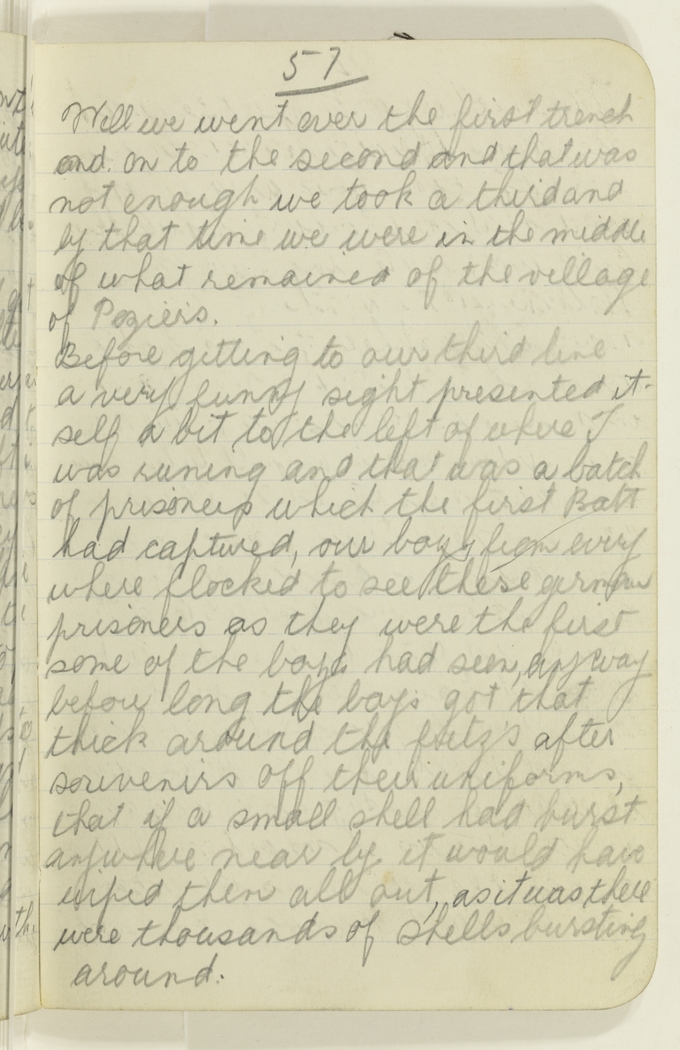 57
Well we went over the first trench
and on to the second and that was
not enough we took a third and
by that time we were in the middle
of what remained of the village
of Poziers.
Before getting to our third line
a very funny sight presented it-
self a bit to the left of where I
was runing and that was a batch
of prisoners which the first Batt
had captured, our boys from every
where flocked to see these german
prisoners as they were the first
some of the boys had seen, anyway
before long the boys got that
thick around the fritz's after
souvenirs off their uniforms,
that if a small shell had burst
anywhere near by it would have
wiped them all out, as it was there
were thousands of shells bursting
around.